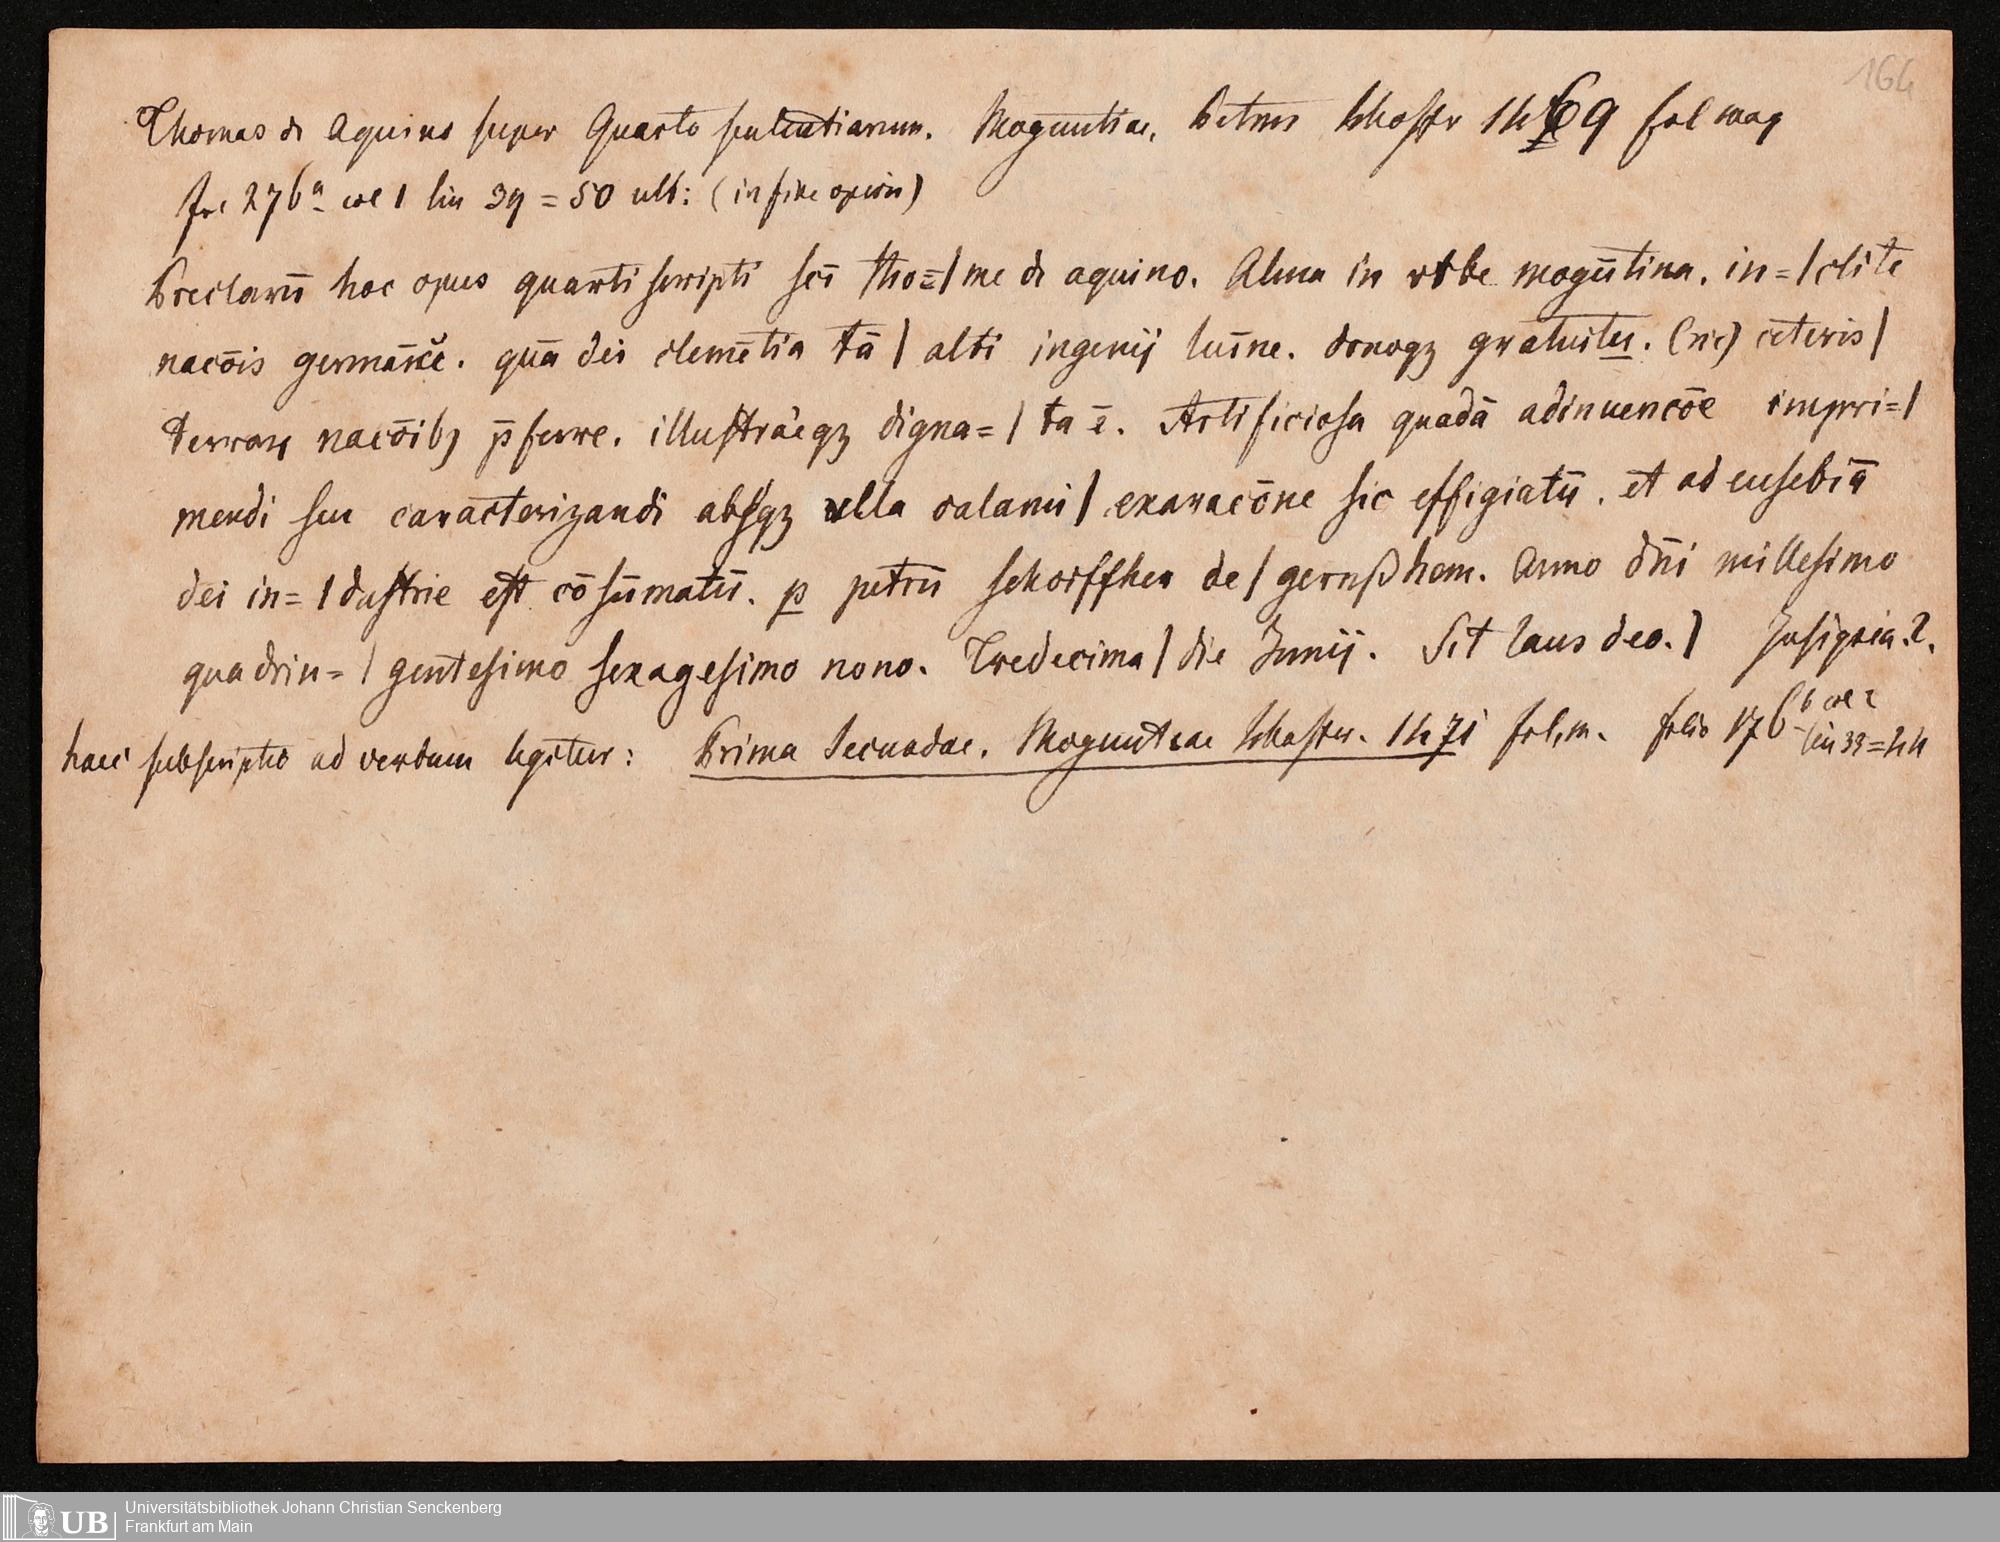 164
Thomas de Aquino super Quarto sententiarum. Moguntiae, Petrus Schoffer 1469 fol mag
fol 276a col 1 lin 39 = 50 ult: (in fine operis)
Preclarū hoc opus quarti scripti scī tho=/me de aquino. Alma in vrbe mogūtina. in=/clite
nacōis germānicē. quā dei clemētia tā / alti ingenij lumīne. donoqꝫ gratuitu. (sic) cēteris /
terraꝝ nacōibꝫ p̄ferre. illustrāeqꝫ digna=/ta ē. Artificiosa quadā adinuencōe impri=/
mendi seu caracterizandi absqꝫ vlla calami / exaracōne sic effigiatū. et ad eusebiā
dei in=/dustrie est cōsūmatū. ꝑ petrū schoiffher de / gernßhem. Anno dn̄i millesimo
quadrin=/gentesimo sexagesimo nono. Tredecima / die Junij. Sit laus deo. / Insignia. 2.
haec subscriptio ad verbum legitur: Prima Secundae. Moguntiae Schoffer. 1471 fol. m. folio 176b col 2
lin 39=44
Universitätsbibliothek Johann Christian Senckenberg
UB Frankfurt am Main